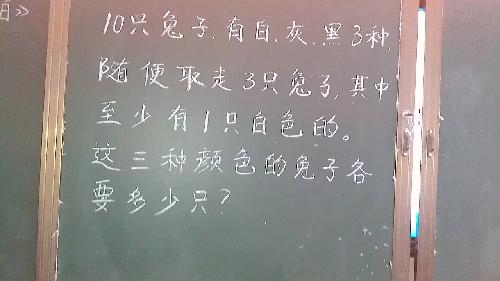 日》
10只兔子.有白.灰.黑3种
随便取走3只兔子,其中
至少有1只白色的。
这三种颜色的兔子各
要多少只?